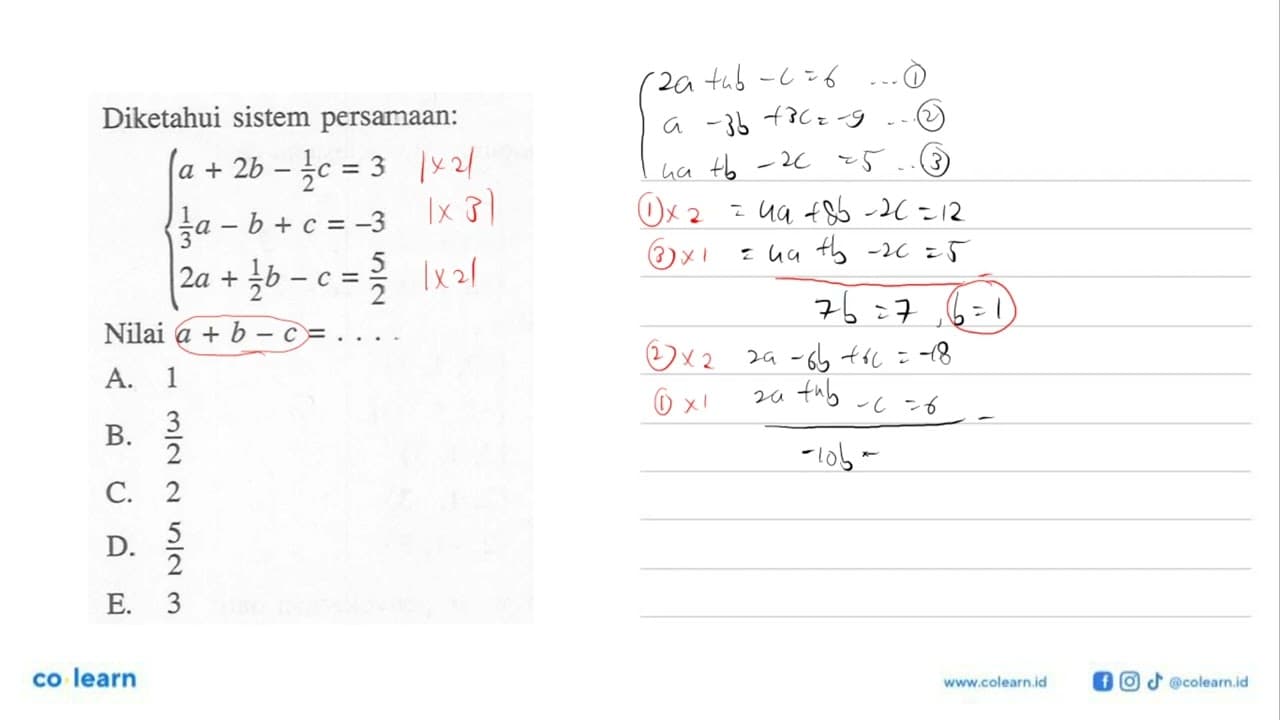 Diketahui sistem persamaan:
a + 2b − 1/2 c = 3 |×2|
1/3 a − b + c = −3 |× 3|
2a + 1/2 b − c = 5/2 |×2|
Nilai a + b − c = . . . .
A. 1
B. 3/2
C. 2
D. 5/2
E. 3
2a + 4b − c = 6 ... ①
a − 3b + 3c = −9 ... ②
4a + b − 2c = 5 .. ③
① × 2 = 4a + 8b − 2c = 12
③ × 1 = 4a + b − 2c = 5
7b = 7 , b = 1
② × 2 2a − 6b + 6c = −18
① × 1 2a + 4b − c = 6 −
−10b
co learn
www.colearn.id @colearn.id